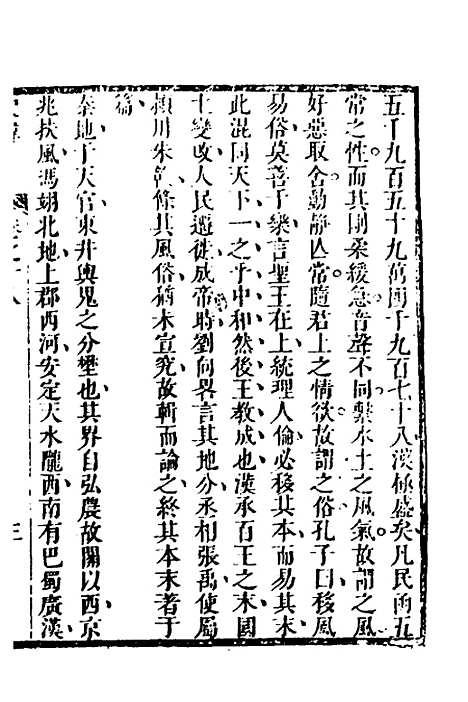 五千九百五十九萬四千九百七十八漢極盛矣凡民函五
常之性而其剛柔緩急音聲不同繫水土之風氣故謂之風
好惡取舍動靜亡常隨君上之情欲故謂之俗孔子曰移風
易俗莫善于樂言聖王在上統理人倫必移其本而易其末
此混同天下一之乎中和然後王教成也漢承百王之末國
土變改人民遷徙成帝時劉向畧言其地分丞相張禹使屬
潁川朱贛條其風俗猶未宣究故輯而論之終其本末著于
篇
秦地于天官東井輿鬼之分壄也其界自弘農故關以西京
兆扶風馮翊北地上郡西河安定天水隴西南有巴蜀廣漢
卷之十八
三